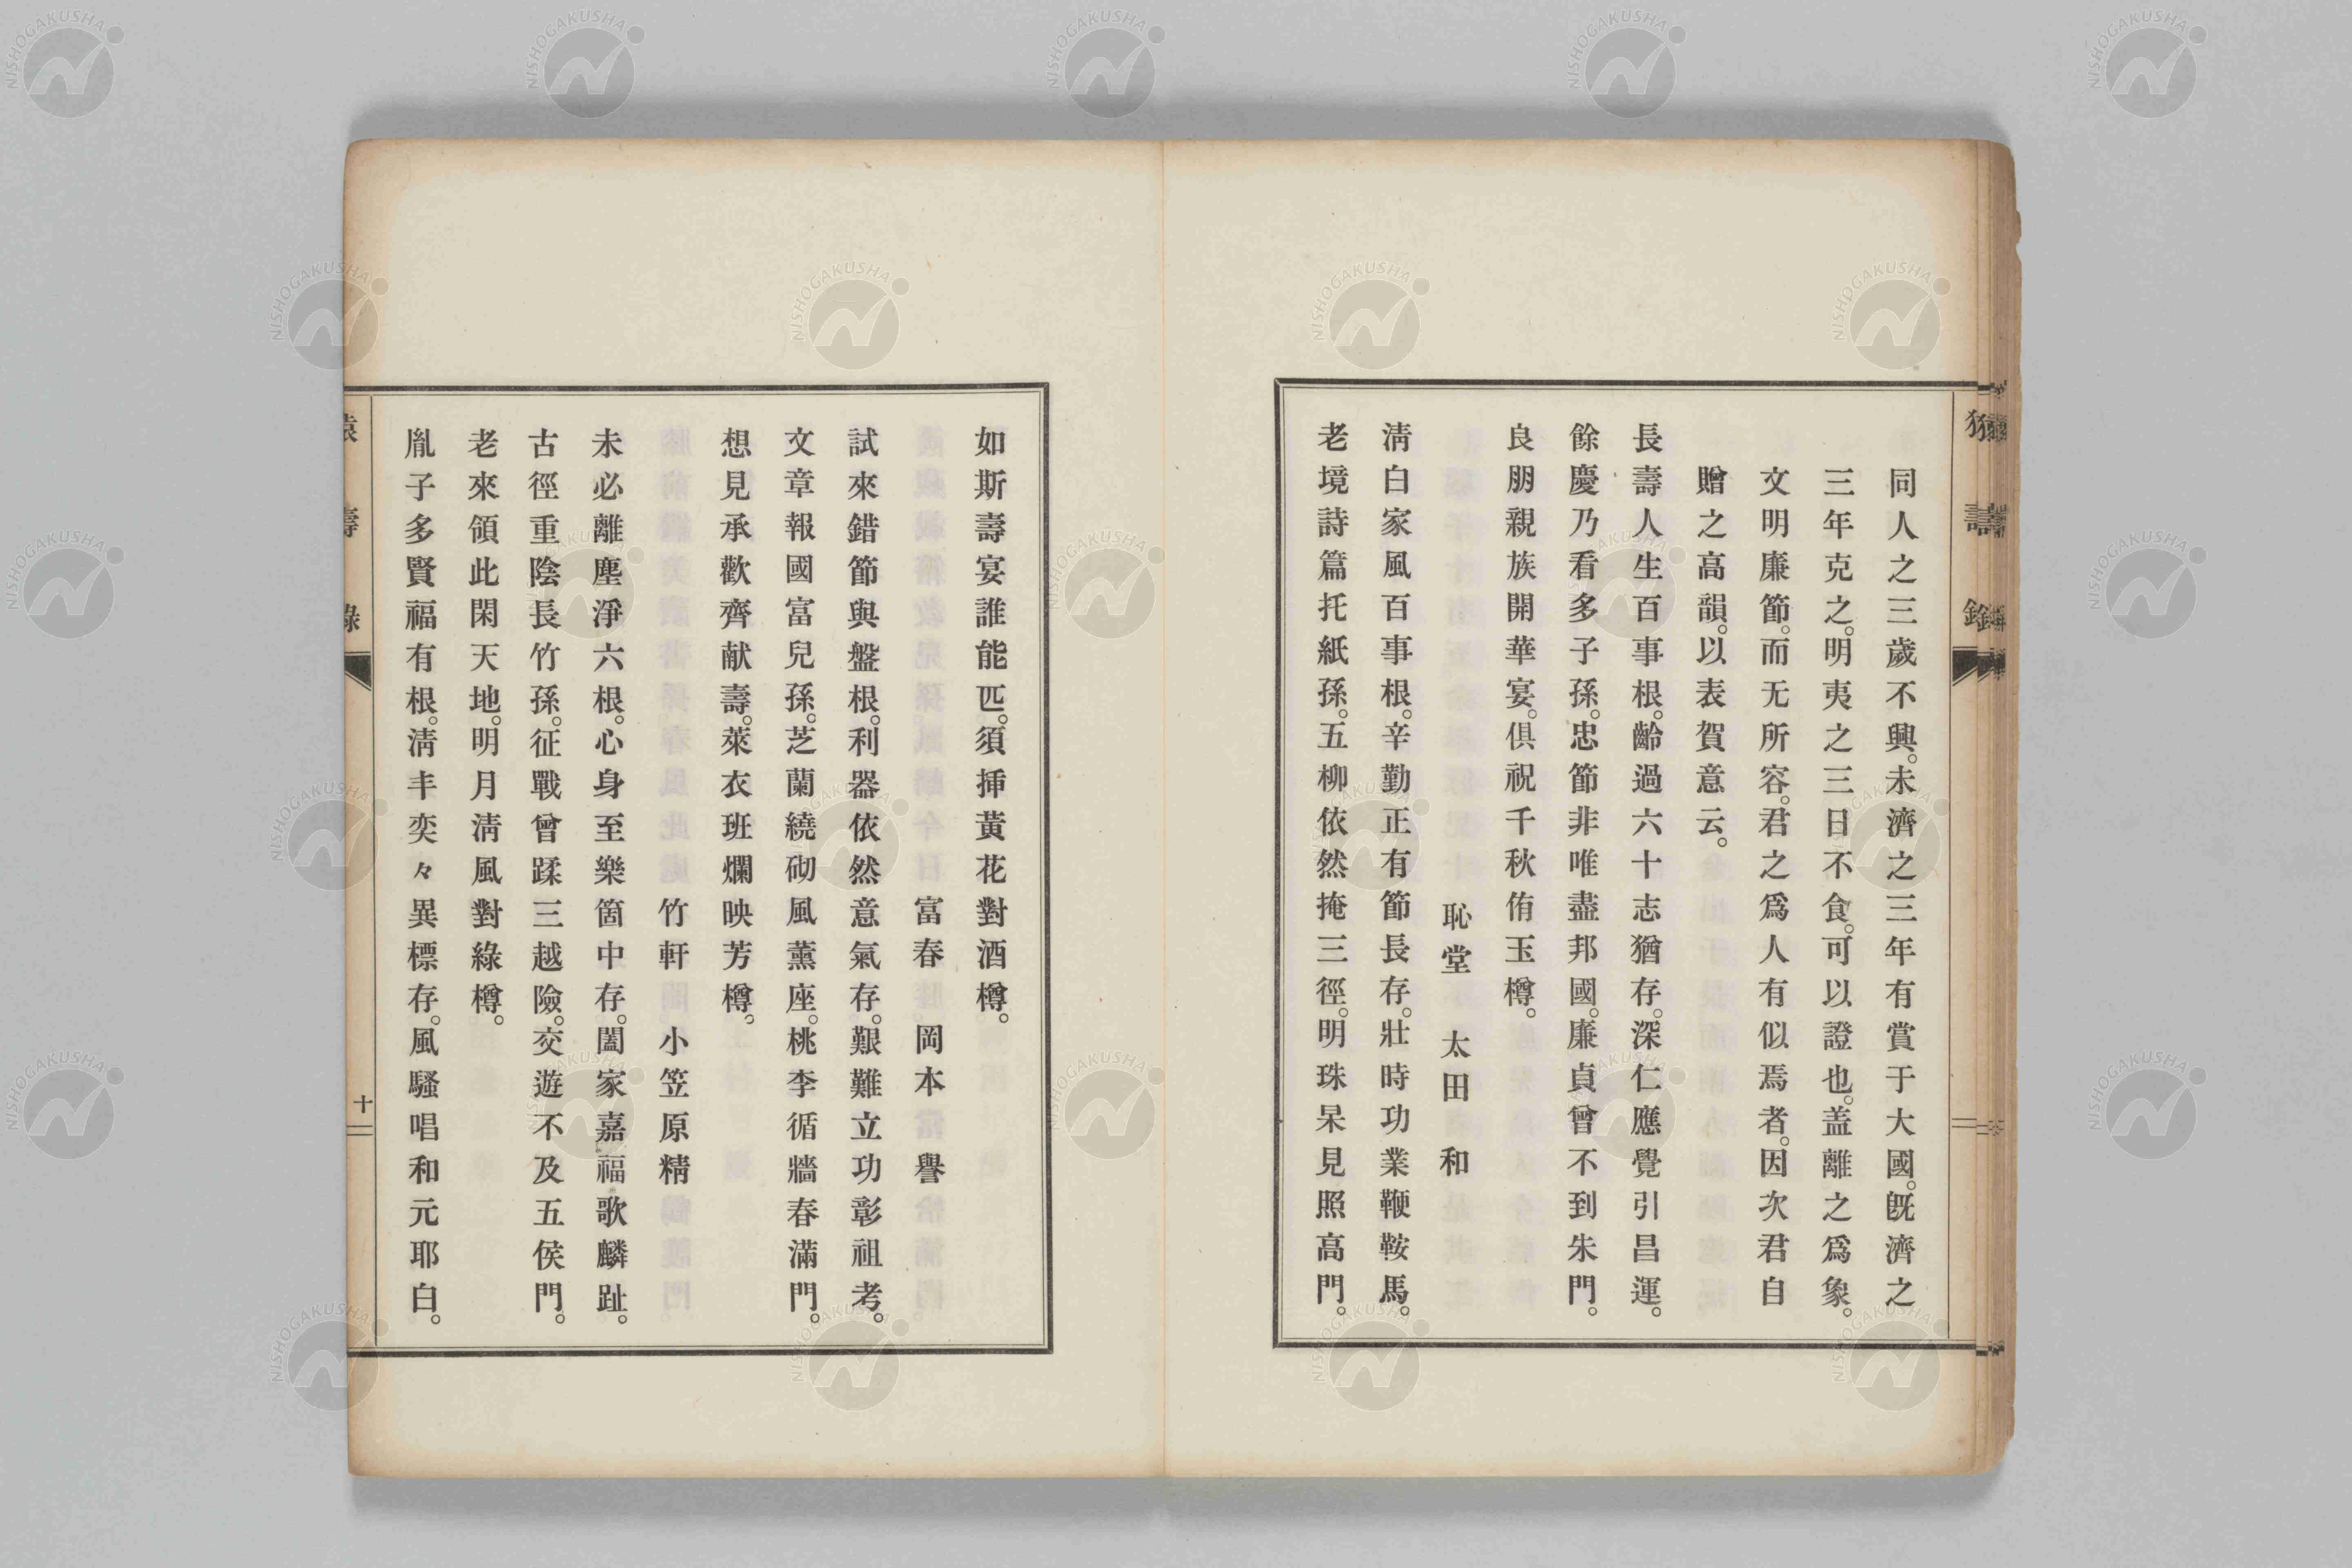 同人之三歲不興。未濟之三年有賞于大國。既濟之
三年克之。明夷之三日不食。可以證也。盖離之爲象。
文明廉節。而无所容。君之爲人有似焉者。因次君自
贈之高韻。以表賀意云。
長壽人生百事根。齡過六十志猶存。深仁應覺引昌運。
餘慶乃看多子孫。忠節非唯盡邦國。廉貞曾不到朱門。
良朋親族開華宴。俱祝千秋侑玉樽。
恥堂 太田和
淸白家風百事根。辛勤正有節長存。壯時功業鞭鞍馬。
老境詩篇托紙孫。五柳依然掩三徑。明珠呆見照高門。
如斯壽宴誰能匹。須揷黃花對酒樽。
富春 岡本譽
試來錯節與盤根。利器依然意氣存。艱難立功彰祖考。
文章報國富兒孫。芝蘭繞砌風薰座。桃李循牆春滿門。
想見承歡齊献壽。萊衣班爛映芳樽。
竹軒 小笠原精
未必離塵淨六根。心身至樂箇中存。闔家嘉福歌麟趾。
古徑重陰長竹孫。征戰曾蹂三越險。交遊不及五侯門。
老來領此閑天地。明月淸風對綠樽。
胤子多賢福有根。淸丰奕々異標存。風騷唱和元耶白。
壽
十
NISHOGAKUSHA